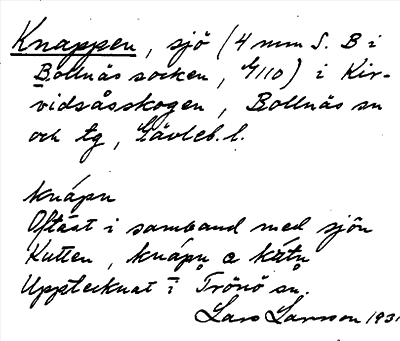 Knappen, sjö (4 mm S. B i
Bollnäs socken, G110) i Kir-
vidsåsskogen, Bollnäs sn
och tg, Gävleb. l.
knápn
Oftast i samband med sjön
Kutten, knápn a kùtn
Upptecknat i Trönö sn.
Lars Larsson 1931